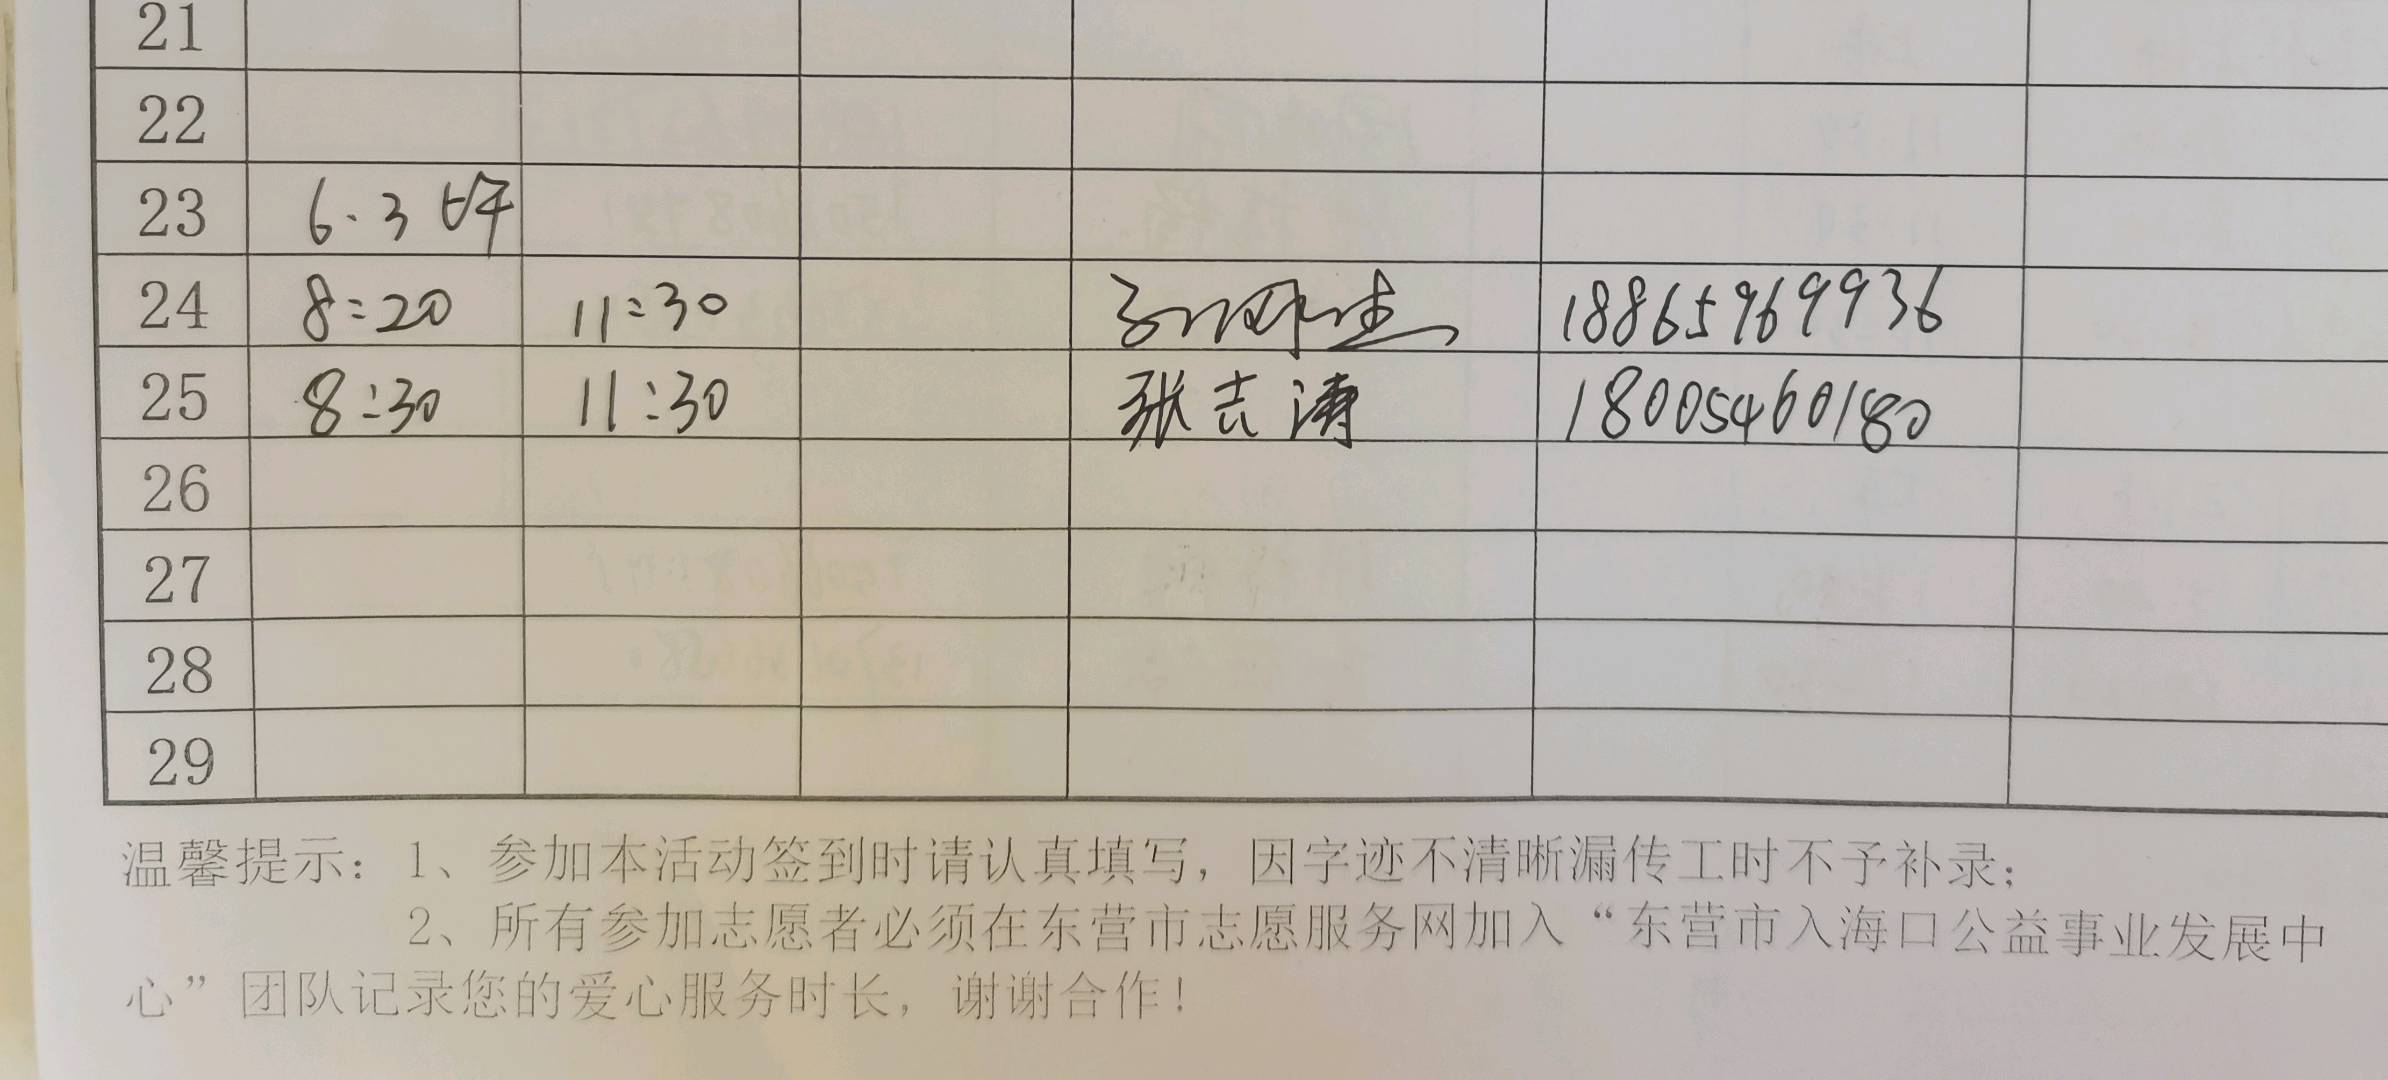 21
22
23 6.3 上午
24 8:20 11:30 18865969936
25 8:30 11:30 张志涛 18005460180
26
27
28
29
温馨提示：1、参加本活动签到时请认真填写，因字迹不清晰漏传工时不予补录；
2、所有参加志愿者必须在东营市志愿服务网加入“东营市入海口公益事业发展中
心”团队记录您的爱心服务时长，谢谢合作！